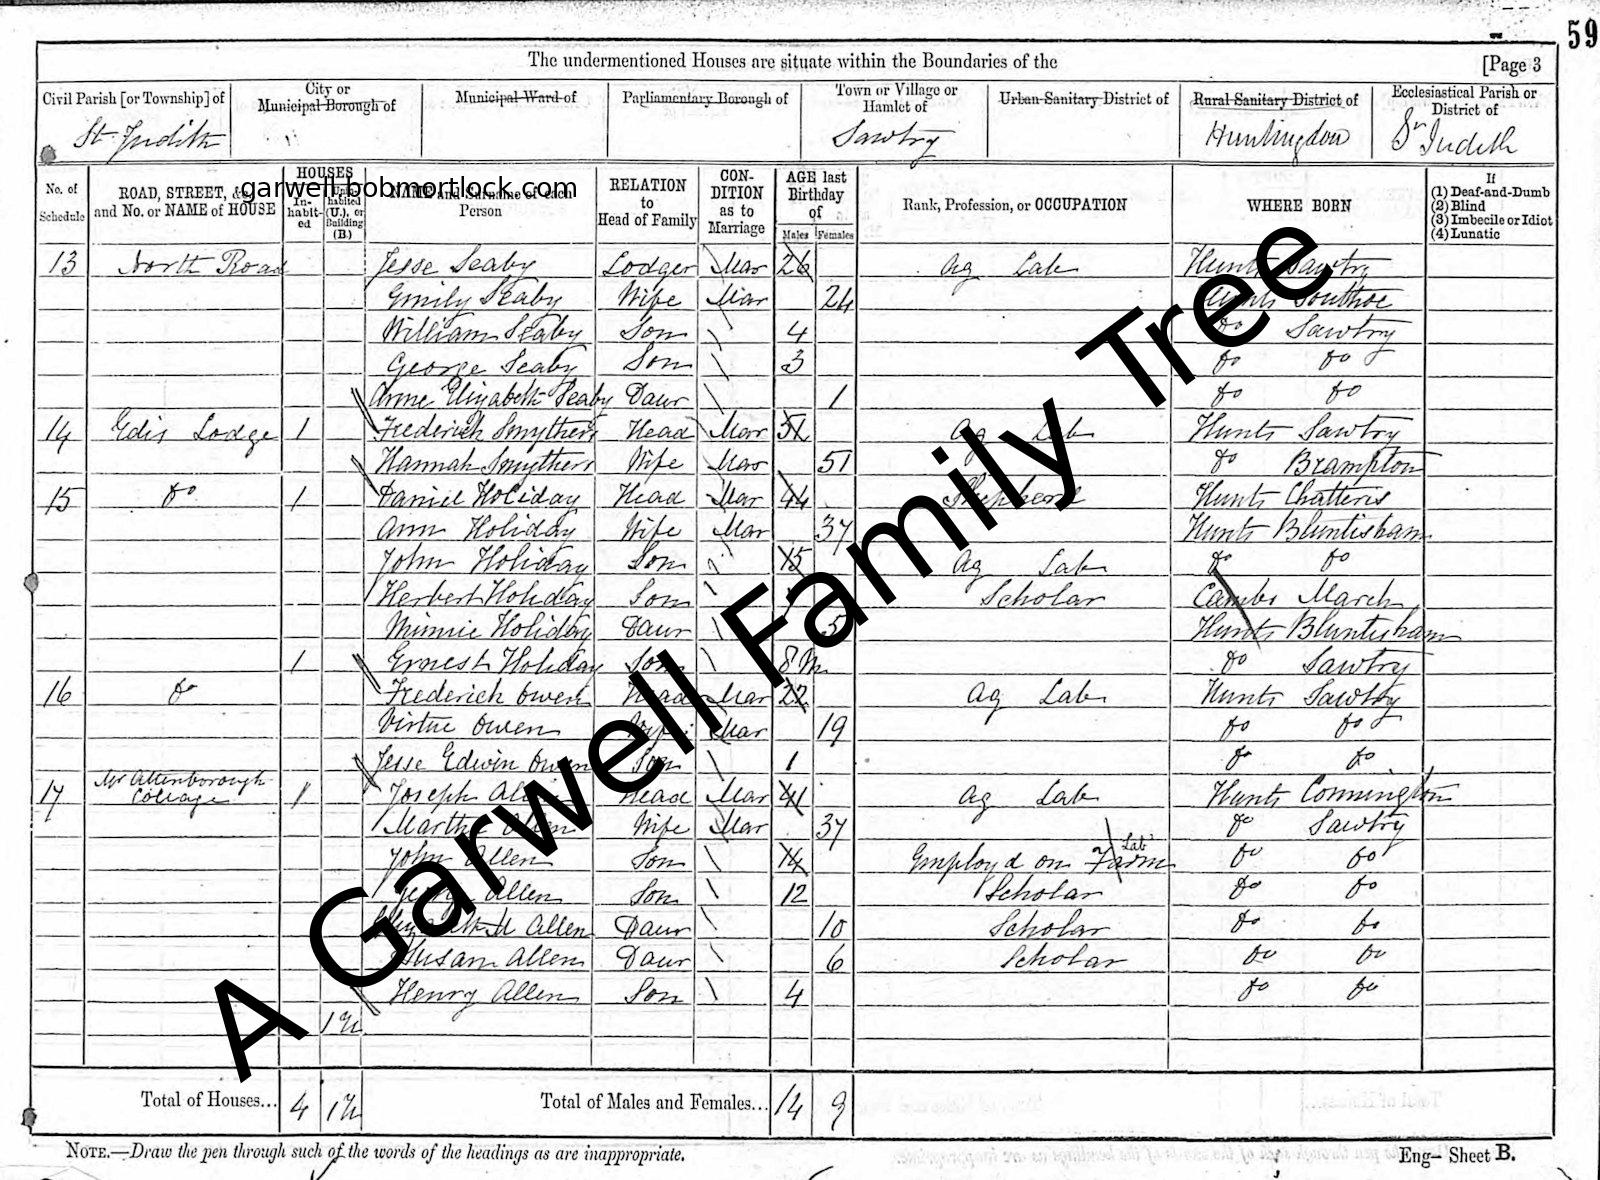 59
The undermentioned Houses are situate within the Boundaries of the
[Page 3
Civil Parish [or Township] of
City or Municipal Borough of
Municipal Ward of
Parliamentary Borough of
Town or Village or Hamlet of
Urban Sanitary District of
Rural Sanitary District of
Ecclesiastical Parish or District of
St. Judith
Sawtry
Huntingdon
St Judith
No. of Schedule
ROAD, STREET, &c., and No. or NAME of HOUSE
HOUSES
In-habit-ed
Unin-habited (U.), or Building (B.)
NAME and Surname of each Person
RELATION to Head of Family
CON-DITION as to Marriage
AGE last Birthday of
Males
Females
Rank, Profession, or OCCUPATION
WHERE BORN
If
(1) Deaf-and-Dumb
(2) Blind
(3) Imbecile or Idiot
(4) Lunatic
garwell.bobmortlock.com
13 North Road Jesse Seaby Lodger Mar 26 Ag Lab Hunts Sawtry
Emily Seaby Wife Mar 24 Hunts Southoe
William Seaby Son 4 do Sawtry
George Seaby Son 3 do do
Anne Elizabeth Seaby Daur 1 do do
14 Edis Lodge 1 Frederick Smythers Head Mar 51 Ag Lab Hunts Sawtry
Hannah Smythers Wife Mar 51 do Brampton
15 do 1 Daniel Holiday Head Mar 44 Shepherd Hunts Chatteris
Ann Holiday Wife Mar 37 Hunts Bluntisham
John Holiday Son 15 Ag Lab do do
Herbert Holiday Son Scholar Cambs March
Minnie Holiday Daur 5 Hunts Bluntisham
1 Ernest Holiday Son 8 m do Sawtry
16 do Frederick Owen Head Mar 22 Ag Lab Hunts Sawtry
Virtue Owen Wife Mar 19 do do
Jesse Edwin Owen Son 1 do do
17 Mr Attenborough Cottage 1 Joseph Allen Head Mar 41 Ag Lab Hunts Connington
Martha Allen Wife Mar 37 do Sawtry
John Allen Son 14 Employd on Farm Lab do do
Allen Son 12 Scholar do do
Elizabeth M Allen Daur 10 Scholar do do
Susan Allen Daur 6 Scholar do do
Henry Allen Son 4 do do
1 U
Total of Houses... 4 1 U Total of Males and Females... 14 9
NOTE.—Draw the pen through such of the words of the headings as are inappropriate.
Eng- Sheet B.
A Garwell Family Tree